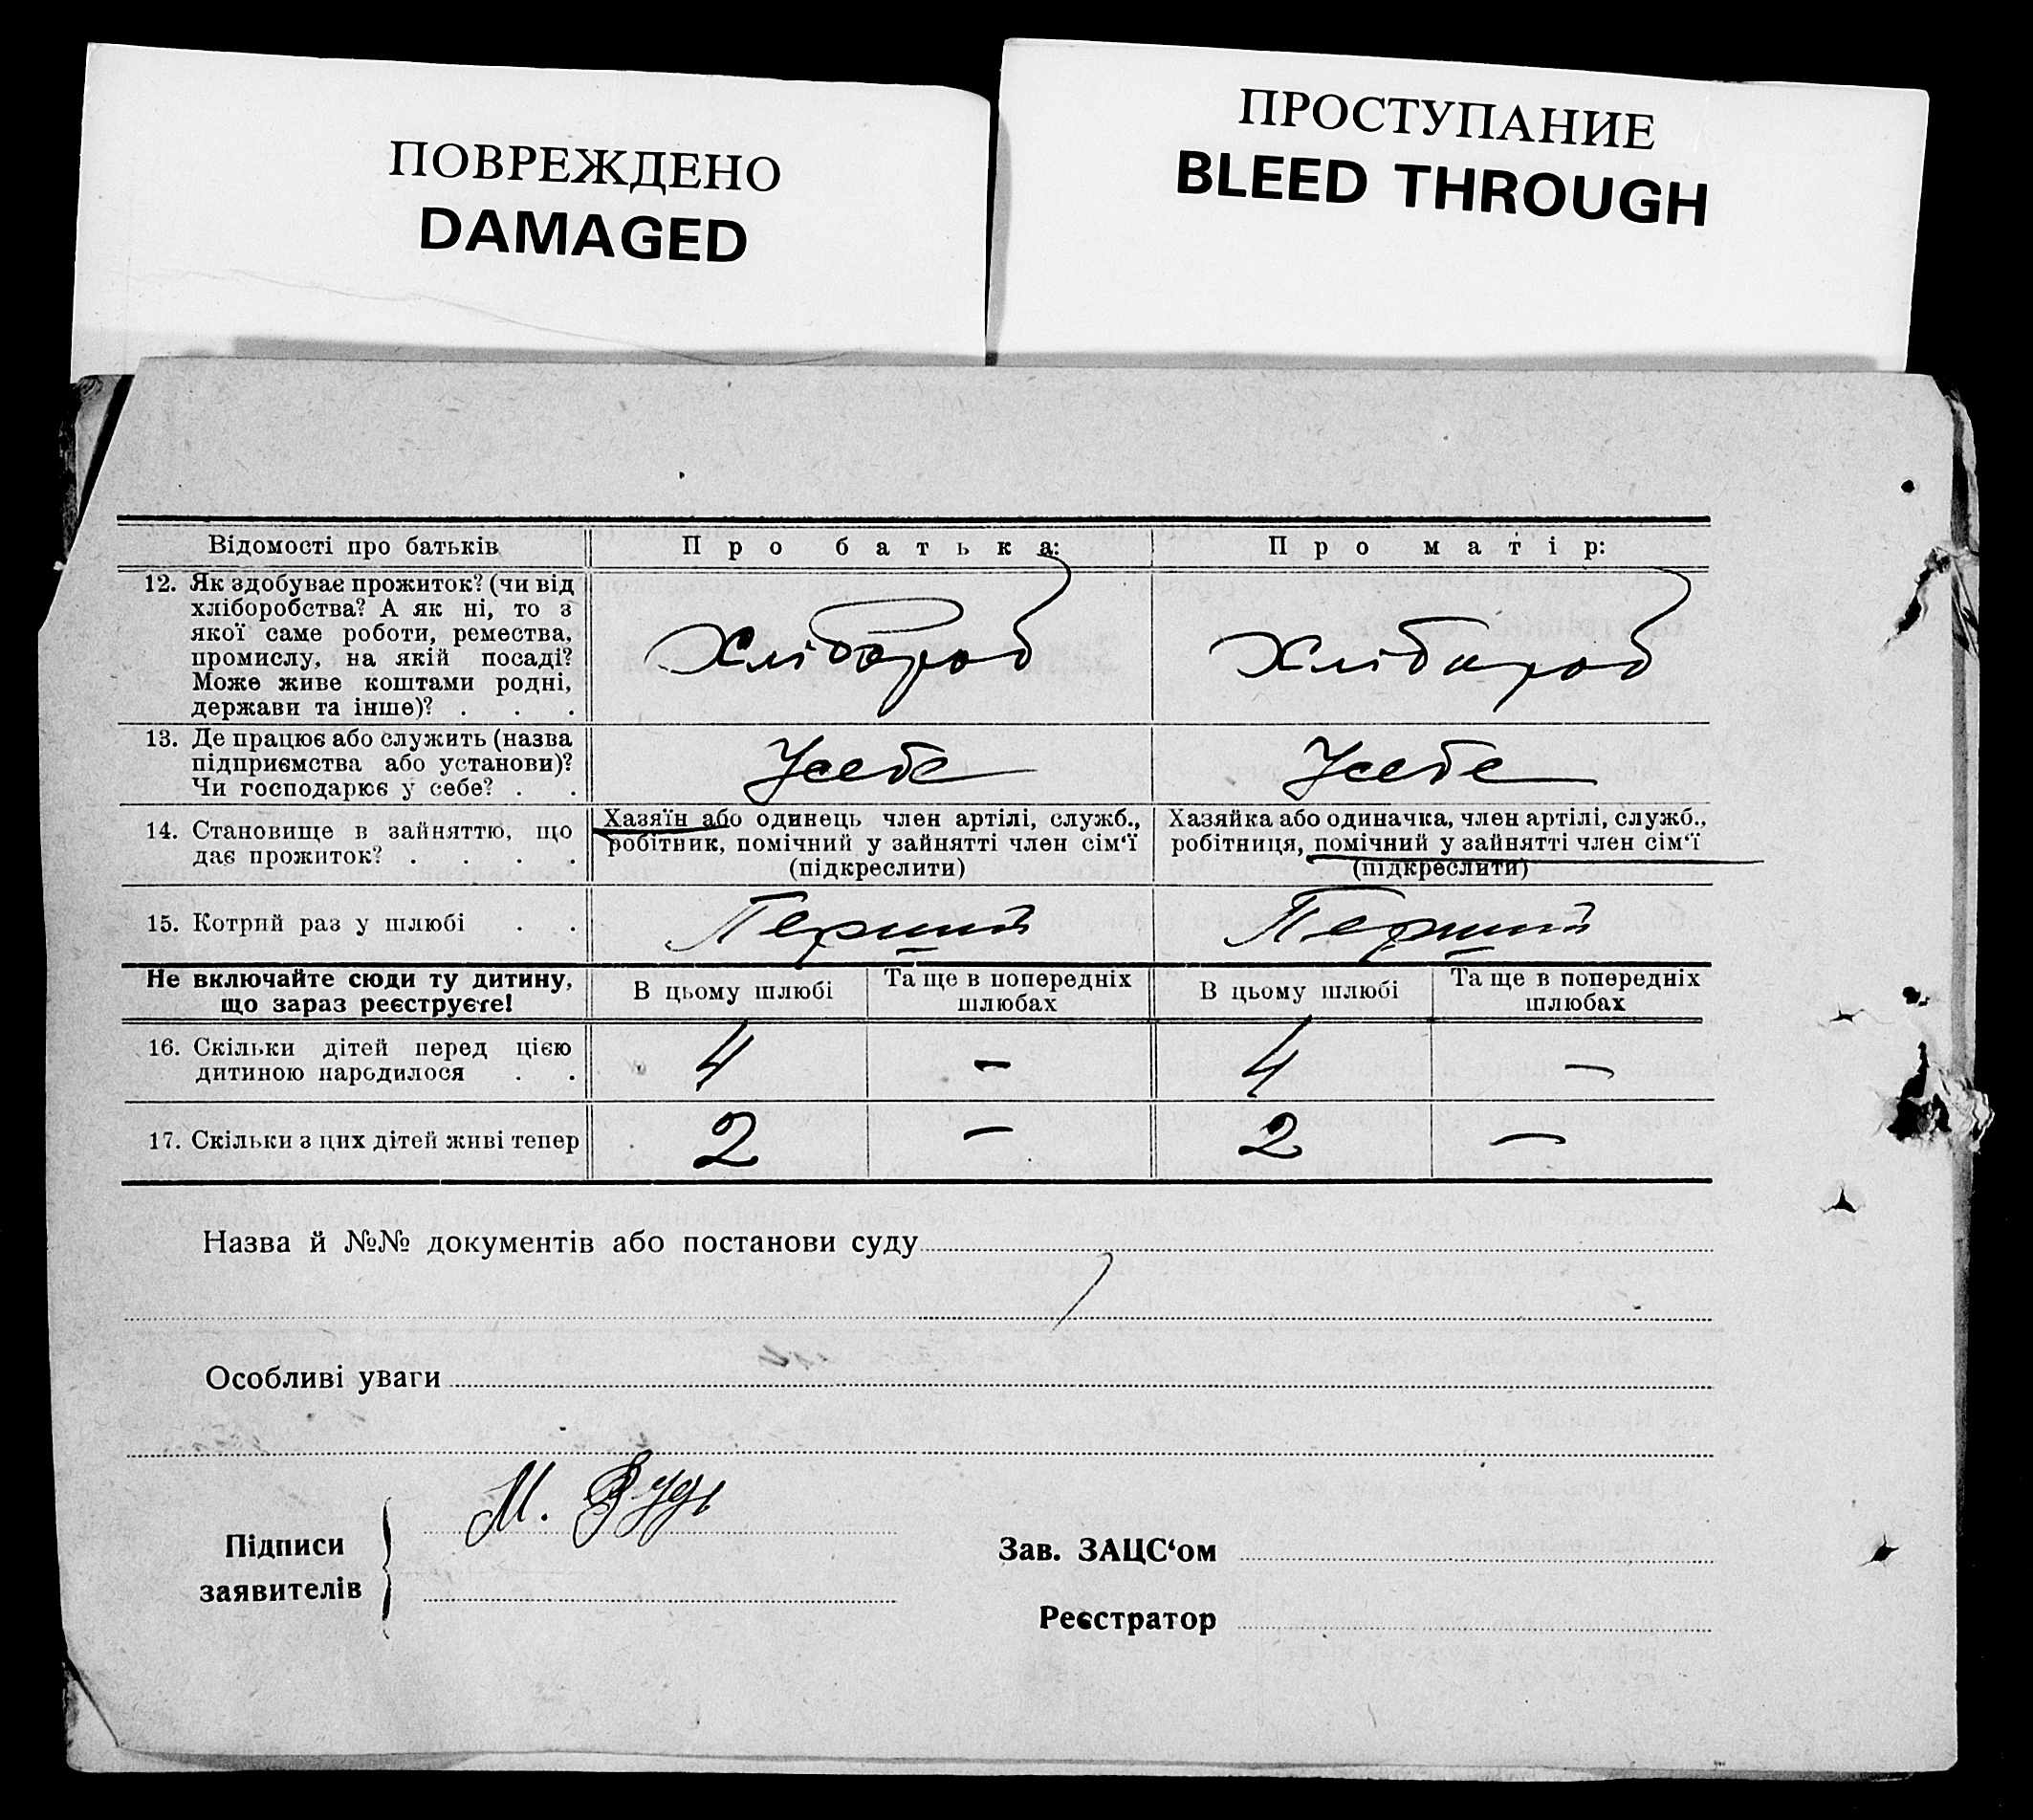 ПОВРЕЖДЕНО
DAMAGED
ПРОСТУПАНИЕ
BLEED THROUGH
Відомості про батьків
Про батька:
Про матір:
12. Як здобуває прожиток? (чи від
хліборобства? А як ні, то з
якої саме роботи, ремества,
промислу, на якій посаді?
Може живе коштами родні,
держави та інше)? . . .
Хлібороб
Хлібороб
13. Де працює або служить (назва
підприємства або установи)?
Чи господарює у себе? . .
Усебе
Усебе
14. Становище в зайняттю, що
дає прожиток? . . . .
Хазяїн або одинець член артілі, служб.,
робітник, помічний у зайнятті член сім‘ї
(підкреслити)
Хазяйка або одиначка, член артілі, служб.,
робітниця, помічний у зайнятті член сім‘ї
(підкреслити)
15. Котрий раз у шлюбі . .
Перший
Перший
Не включайте сюди ту дитину,
що зараз реєструєте!
В цьому шлюбі
Та ще в попередніх
шлюбах
В цьому шлюбі
Та ще в попередніх
шлюбах
16. Скільки дітей перед цією
дитиною народилося . .
4
—
4
—
17. Скільки з цих дітей живі тепер
2
—
2
—
Назва й №№ документів або постанови суду
Особливі уваги
Підписи
заявителів
М.
Зав. ЗАЦС‘ом
Реєстратор